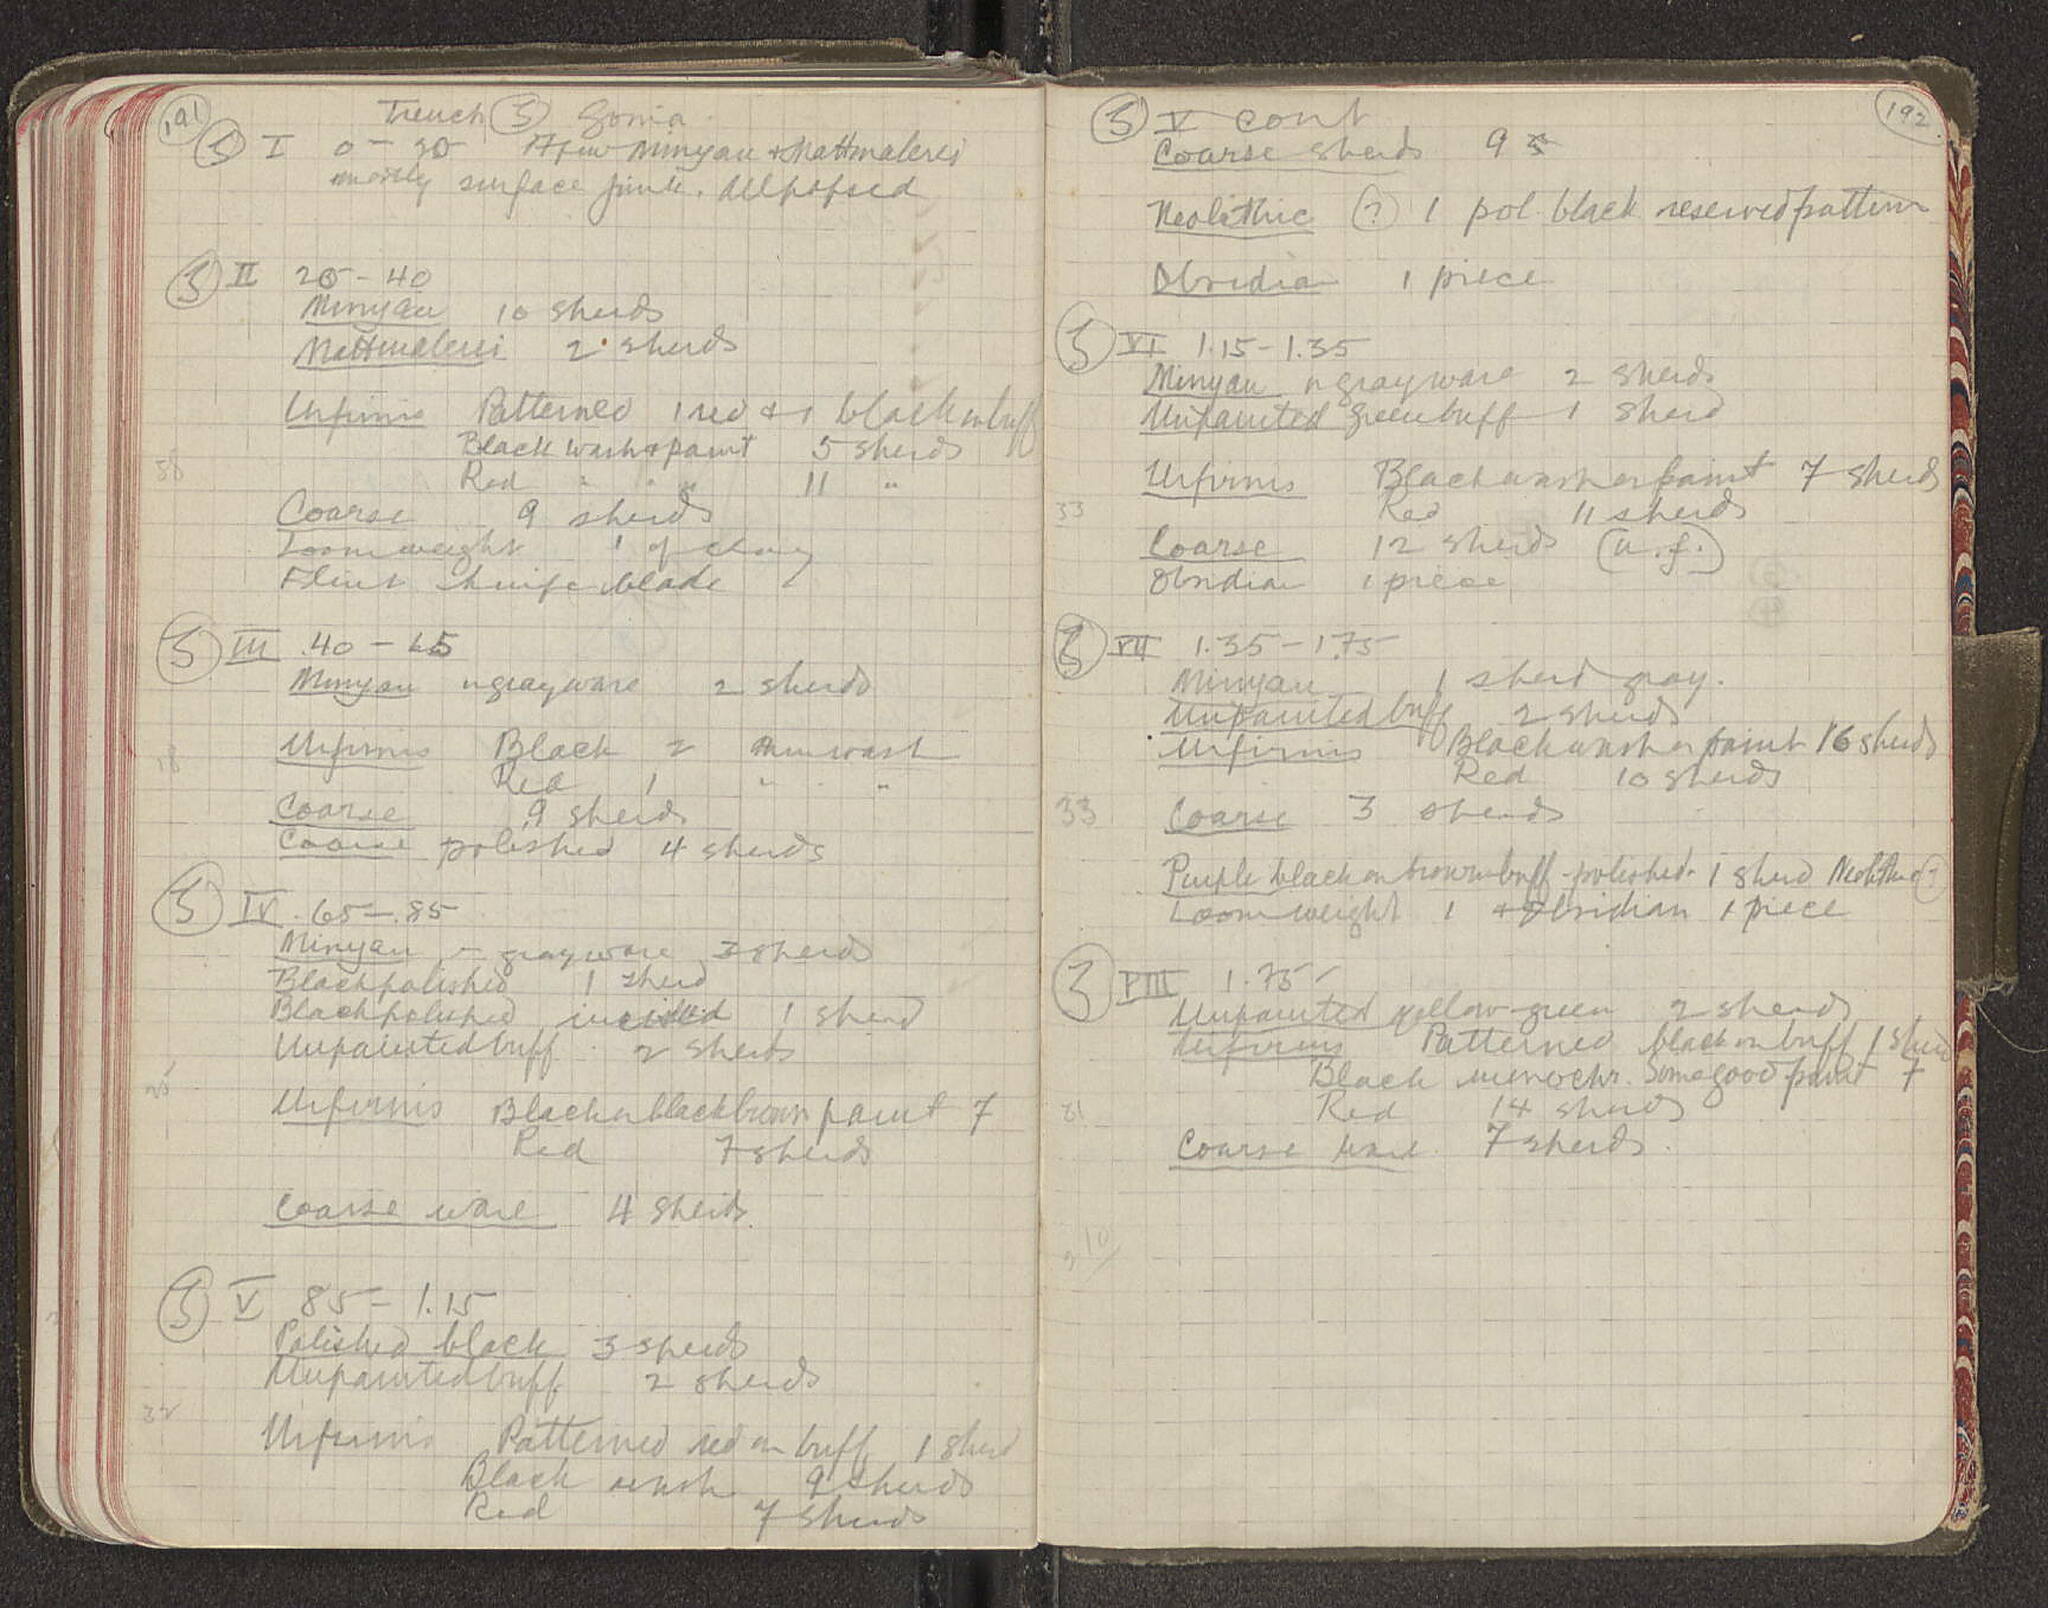 191
Trench 3 Gonia
3 I 0 - 20 A few Minyan & Mattmalerei
mostly surface finds. All popsed
3 II 20 - 40
Minyan 10 sherds
Mattmalerei 2 sherds
Urfirnis Patterned 1 red & 1 black on buff
Black wash & paint 5 sherds
58
Red " " " 11 "
Coarse 9 sherds
Loomweight 1 of clay
Flint knife blade
3 III .40 - 65
Minyan n gray ware 2 sherds
Urfirnis Black 2 thin wash
18
Red 1 " "
Coarse 9 sherds
Coarse polished 4 sherds
3 IV .65 - .85
Minyan n gray ware 3 sherds
Black polished 1 sherd
Black polished incised 1 sherd
Unpainted buff 2 sherds
25
Urfirnis Black or black brown paint 7
Red 7 sherds
Coarse ware 4 sherds
3 V 85 - 1.15
Polished black 3 sherds
Unpainted buff 2 sherds
32
Urfirnis Patterned red on buff 1 sherd
Black wash 9 sherds
Red 7 sherds
192
3 V cont
Coarse sherds 9
Neolithic (?) 1 pol. black reserved pattern
Obsidian 1 piece
3 VI 1.15 - 1.35
Minyan n gray ware 2 sherds
Unpainted green buff 1 sherd
Urfirnis Black wash or paint 7 sherds
33
Red 11 sherds
Coarse 12 sherds (u.f.)
Obsidian 1 piece
3 VII 1.35 - 1.75
Minyan 1 sherd gray.
Unpainted buff 2 sherds
Urfirnis Black wash or paint 16 sherds
Red 10 sherds
33
Coarse 3 sherds
Purple black on brown buff - polished - 1 sherd Neolithic (?)
Loom weight 1 + Obsidian 1 piece
3 VIII 1.75 -
Unpainted yellow-green 2 sherds
Urfirnis Patterned black on buff 1 sherd
Black monochr. Some good paint 7
31
Red 14 sherds
Coarse ware 7 sherds.
210